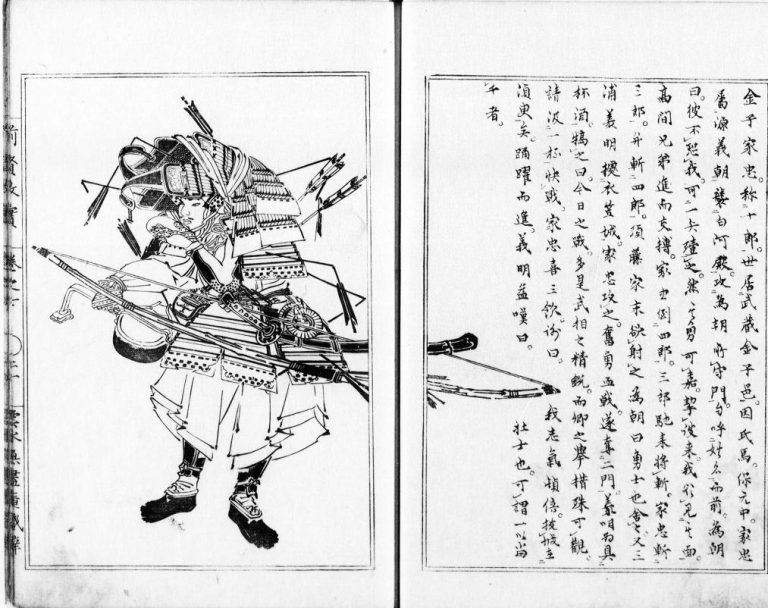 金子家忠。称十郎。世居武蔵金子邑。因氏焉。保元中。家忠
属源義朝。襲白河殿。攻為朝所守門。自呼姓名而前。為朝
曰。彼不恐我。可一矢殪之。然其勇可嘉。挈彼来。我欲見其面。
高間兄弟進而支搏。家忠倒四郎。三郎馳来将斬。家忠斬
三郎。并斬四郎。須藤家末欲射之。為朝曰。勇士也。舎之。又三
浦義明拠衣笠城。家忠攻之。奮勇血戦。遂奪二門。義明為具
杯酒。犒之曰。今日之戦。多是武相之精鋭。而卿之挙措殊可観。
請汲一杯快戦。家忠喜三飲。謝曰。我志氣頓倍。抜城在
須臾矣。踊躍而進。義明益嘆曰。壮士也。可謂一以当
千者。
前賢故實 卷之 雲水無盡庵蔵梓